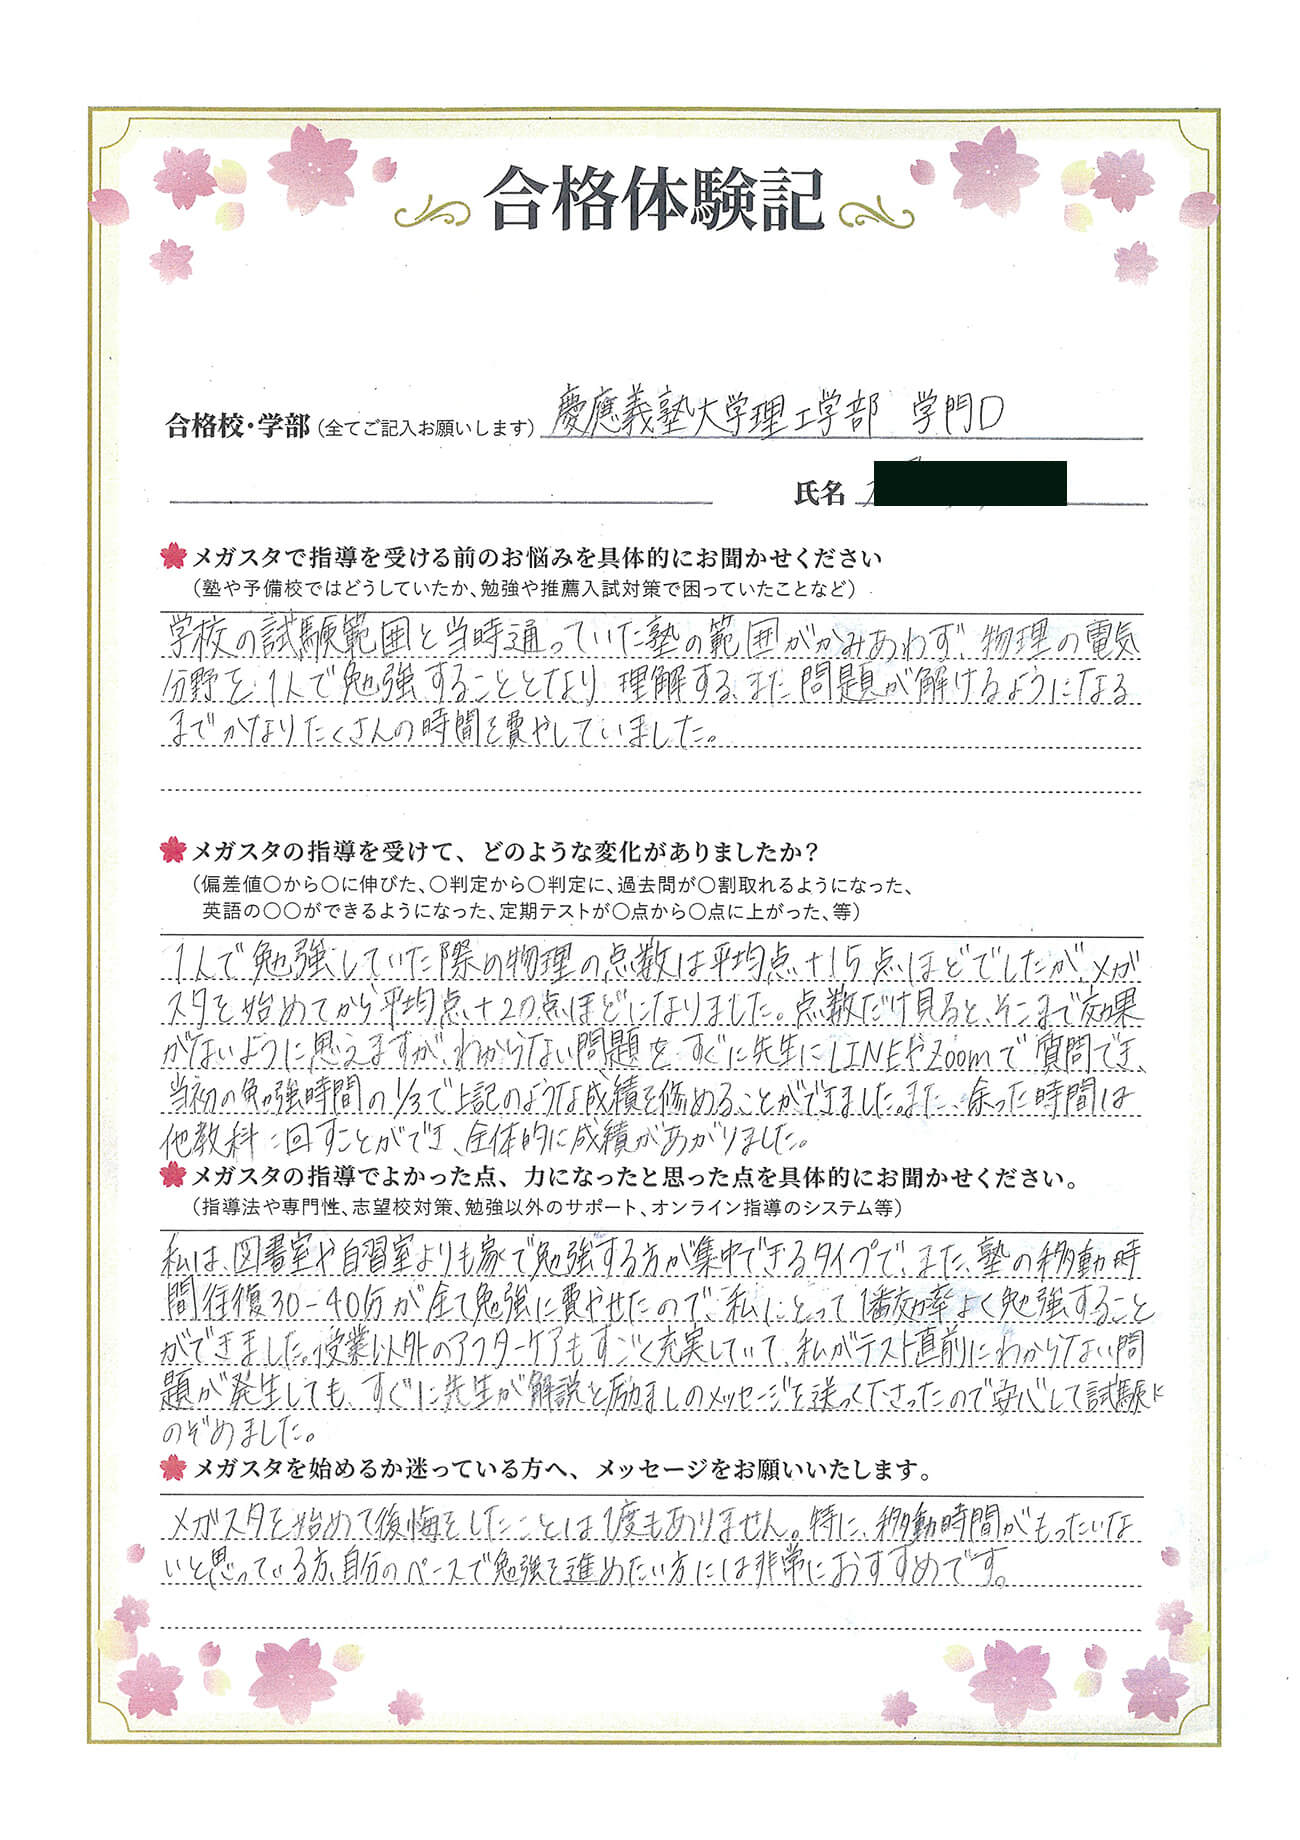 合格体験記
合格校・学部（全てご記入お願いします） 慶應義塾大学理工学部 学門D
氏名
メガスタで指導を受ける前のお悩みを具体的にお聞かせください
（塾や予備校ではどうしていたか、勉強や推薦入試対策で困っていたことなど）
学校の試験範囲と当時通っていた塾の範囲がかみあわず、物理の電気
分野を1人で勉強することとなり、理解する、また問題が解けるようになる
までかなりたくさんの時間を費やしていました。
メガスタの指導を受けて、どのような変化がありましたか？
（偏差値〇から〇に伸びた、〇判定から〇判定に、過去問が〇割取れるようになった、
英語の〇〇ができるようになった、定期テストが〇点から〇点に上がった、等）
1人で勉強していた際の物理の点数は平均点+15点ほどでしたが、メガ
スタを始めてから平均点+20点ほどになりました。点数だけ見ると、そこまで効果
がないように思えますが、わからない問題を、すぐに先生にLINEやZoomで質問でき、
当初の勉強時間の1/3で上記のような成績を修めることができました。また、余った時間は
他教科に回すことができ、全体的に成績があがりました。
メガスタの指導でよかった点、力になったと思った点を具体的にお聞かせください。
（指導法や専門性、志望校対策、勉強以外のサポート、オンライン指導のシステム等）
私は、図書室や自習室よりも家で勉強する方が集中できるタイプで、また、塾の移動時
間往復30-40分が全て勉強に費やせたので、私にとって1番効率よく勉強すること
ができました。授業以外のアフターケアもすごく充実していて、私がテスト直前にわからない問
題が発生しても、すぐに先生が解説と励ましのメッセージを送ってくださったので安心して試験に
のぞめました。
メガスタを始めるか迷っている方へ、メッセージをお願いいたします。
メガスタを始めて後悔をしたことは1度もありません。特に、移動時間がもったいな
いと思っている方、自分のペースで勉強を進めたい方には非常におすすめです。